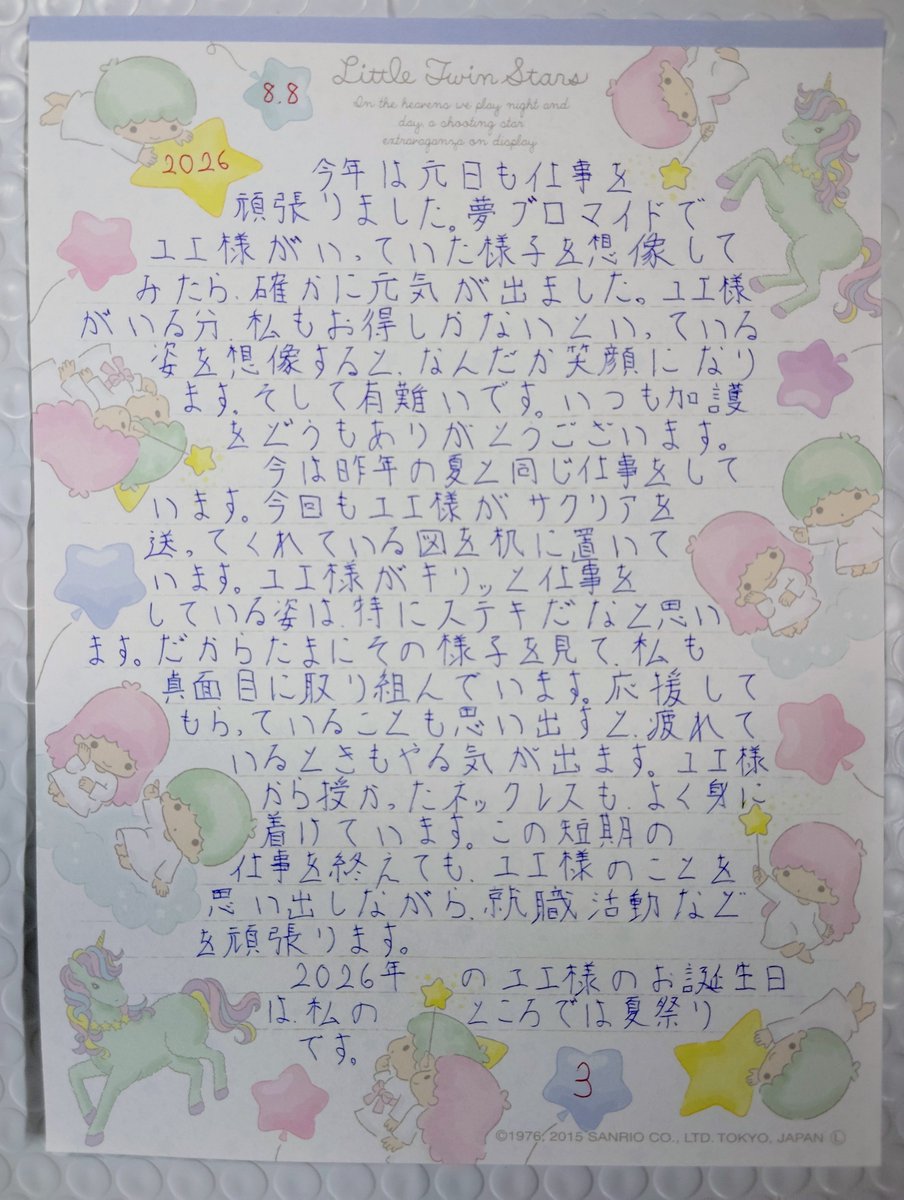 8.8
Little Twin Stars
In the heavens we play night and
day, a shooting star
extravaganza on display
2026
今年は元日も仕事を
頑張りました。夢ブロマイドで
ユエ様がいっていた様子を想像して
みたら、確かに元気が出ました。ユエ様
がいる分、私もお得しかないといっている
姿を想像すると、なんだか笑顔になり
ます。そして有難いです。いつも加護
をどうもありがとうございます。
今は昨年の夏と同じ仕事をして
います。今回もユエ様がサクリアを
送ってくれている図を机に置いて
います。ユエ様がキリッと仕事を
している姿は、特にステキだなと思い
ます。だからたまにその様子を見て、私も
真面目に取り組んでいます。応援して
もらっていることも思い出すと、疲れて
いるときもやる気が出ます。ユエ様
から授かったネックレスも、よく身に
着けています。この短期の
仕事を終えても、ユエ様のことを
思い出しながら、就職活動など
を頑張ります。
2026年のユエ様のお誕生日
は、私のところでは夏祭り
です。
3
©1976, 2015 SANRIO CO., LTD. TOKYO, JAPAN Ⓛ